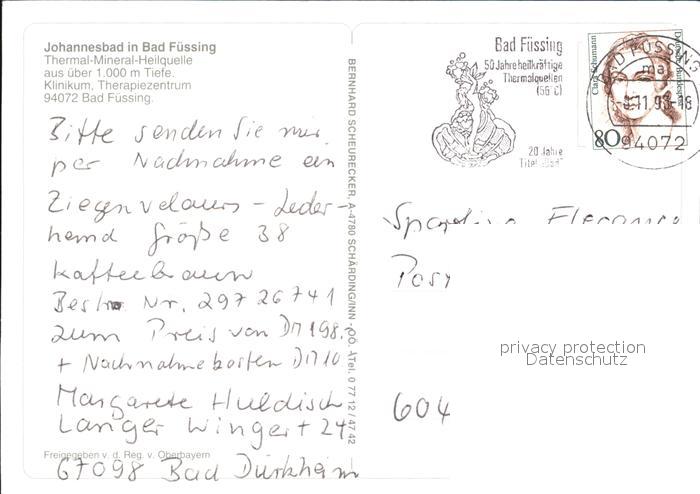 Johannesbad in Bad Füssing
Thermal-Mineral-Heilquelle
aus über 1.000 m Tiefe.
Klinikum, Therapiezentrum
94072 Bad Füssing.
Bitte senden Sie mir
per Nachnahme ein
Ziegenvelours-Leder-
hemd Größe 38
kaffeebraun
Best. Nr. 29726741
zum Preis von DM 198.-
+ Nachnahmekosten DM 10
Margarete Huldisch
Langer Wingert 24
Freigegeben v. d. Reg. v. Oberbayern
67098 Bad Dürkheim
BERNHARD SCHEURECKER, A-4780 SCHÄRDING/INN - OÖ. ATel. 0 77 12 / 47 42
Bad Füssing
50 Jahre heilkräftige
Thermalquellen
(56°C)
20 Jahre
Titel "Bad"
Clara Schumann
Deutsche Bundespost
80
BAD FÜSSING
ma
94072
Post
privacy protection
Datenschutz
604